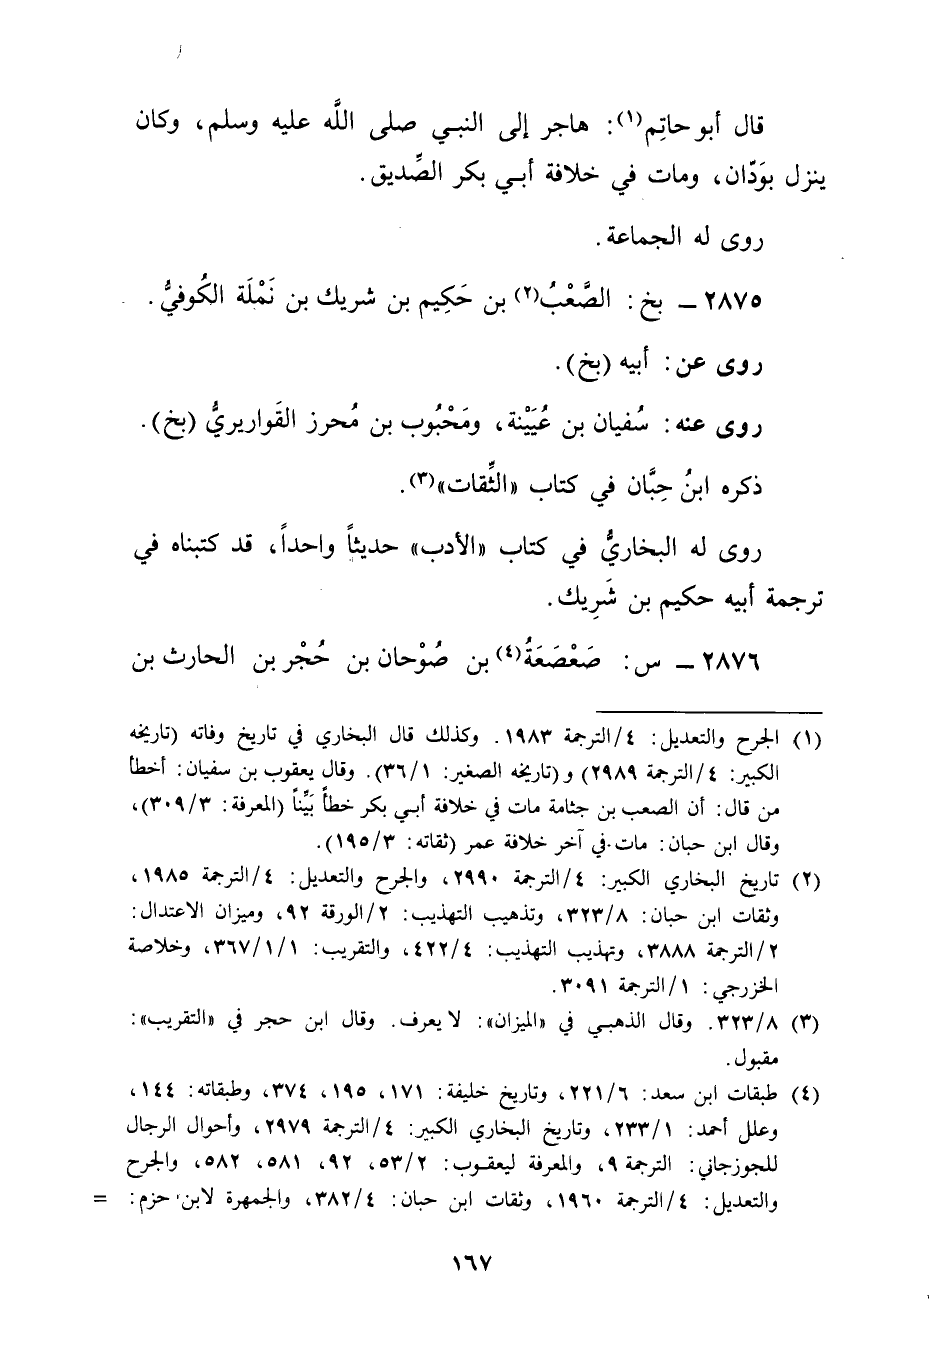 قال أبو حاتِم(١): هاجر إلى النبي صلى اللَّه عليه وسلم، وكان
ينزل بوَدّان، ومات في خلافة أبي بكر الصِّديق.
روى له الجماعة.
٢٨٧٥ ـ بخ: الصَّعْبُ(٢) بن حَكِيم بن شريك بن نَمْلَة الكُوفيُّ.
روى عن: أبيه (بخ).
روى عنه: سُفيان بن عُيَيْنة، ومَحْبُوب بن مُحرز القَواريريُّ (بخ).
ذكره ابنُ حِبَّان في كتاب «الثِّقات»(٣).
روى له البخاريُّ في كتاب «الأدب» حديثاً واحداً، قد كتبناه في
ترجمة أبيه حكيم بن شَرِيك.
٢٨٧٦ ـ س: صَعْصَعَةُ(٤) بن صُوْحان بن حُجْر بن الحارث بن
(١) الجرح والتعديل: ٤/الترجمة ١٩٨٣. وكذلك قال البخاري في تاريخ وفاته (تاريخه
الكبير: ٤/الترجمة ٢٩٨٩) و(تاريخه الصغير: ٣٦/١). وقال يعقوب بن سفيان: أخطأ
من قال: أن الصعب بن جثامة مات في خلافة أبي بكر خطأً بَيِّناً (المعرفة: ٣٠٩/٣)،
وقال ابن حبان: مات في آخر خلافة عمر (ثقاته: ١٩٥/٣).
(٢) تاريخ البخاري الكبير: ٤/الترجمة ٢٩٩٠، والجرح والتعديل: ٤/الترجمة ١٩٨٥،
وثقات ابن حبان: ٣٢٣/٨، وتذهيب التهذيب: ٢/الورقة ٩٢، وميزان الاعتدال:
٢/الترجمة ٣٨٨٨، وتهذيب التهذيب: ٤٢٢/٤، والتقريب: ٣٦٧/١/١، وخلاصة
الخزرجي: ١/الترجمة ٣٠٩١.
(٣) ٣٢٣/٨. وقال الذهبي في «الميزان»: لا يعرف. وقال ابن حجر في «التقريب»:
مقبول.
(٤) طبقات ابن سعد: ٢٢١/٦، وتاريخ خليفة: ١٧١، ١٩٥، ٣٧٤، وطبقاته: ١٤٤،
وعلل أحمد: ٢٣٣/١، وتاريخ البخاري الكبير: ٤/الترجمة ٢٩٧٩، وأحوال الرجال
للجوزجاني: الترجمة ٩، والمعرفة ليعقوب: ٥٣/٢، ٩٢، ٥٨١، ٥٨٢، والجرح
والتعديل: ٤/الترجمة ١٩٦٠، وثقات ابن حبان: ٣٨٢/٤، والجمهرة لابن حزم: =
١٦٧